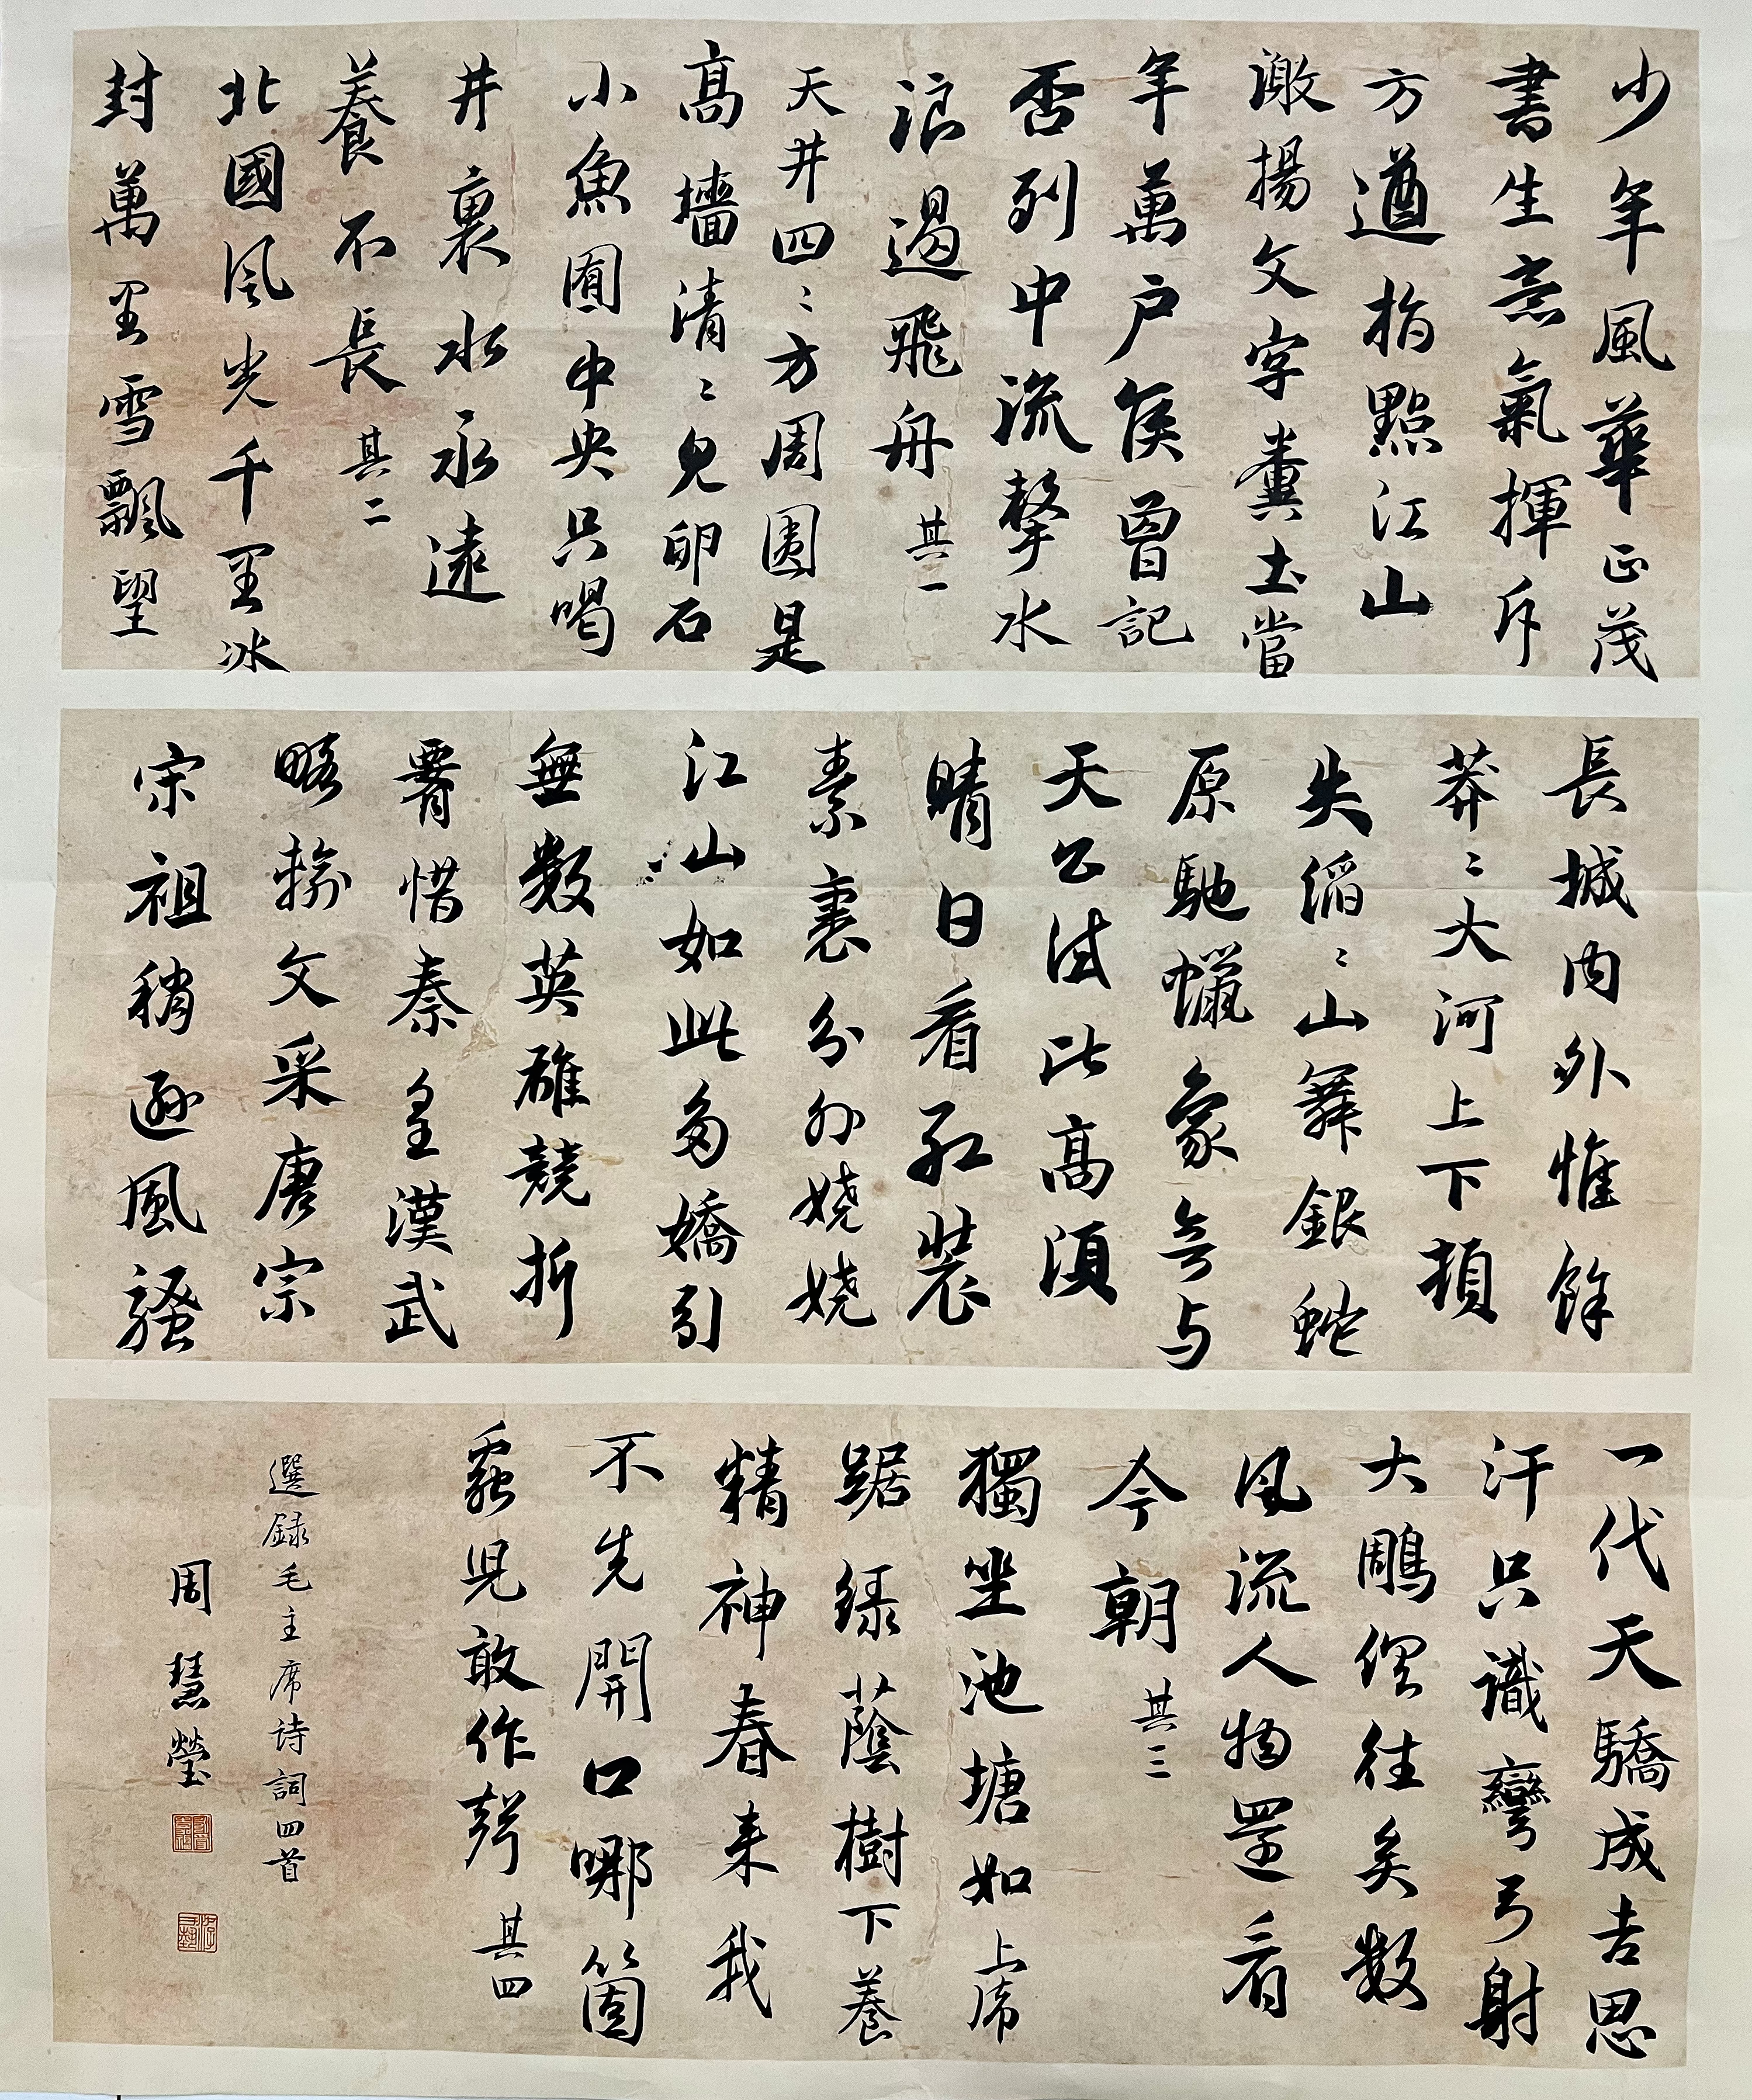 少年風華正茂
書生意氣揮斥
方遒指點江山
激揚文字糞土當
年萬戶侯曾記
否到中流擊水
浪遏飛舟 其一
天井四〻方周圍是
高墻清〻見卵石
小魚囿中央只喝
井裏水永遠
養不長 其二
北國風光千里冰
封萬里雪飄望
長城內外惟餘
莽〻大河上下頓
失滔〻山舞銀蛇
原馳蠟象欲与
天公試比高須
晴日看紅裝
素裹分外嬈嬈
江山如此多嬌引
無數英雄競折
腰惜秦皇漢武
略輸文采唐宗
宋祖稍遜風騷
一代天驕成吉思
汗只識彎弓射
大雕俱往矣數
風流人物還看
今朝 其三
獨坐池塘如上席
踞綠蔭樹下養
精神春来我
不先開口哪箇
蟲兒敢作聲 其四
選録毛主席诗詞四首
周慧瑩